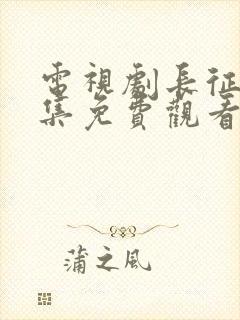 電視劇長征
集免費觀看
蒲之風